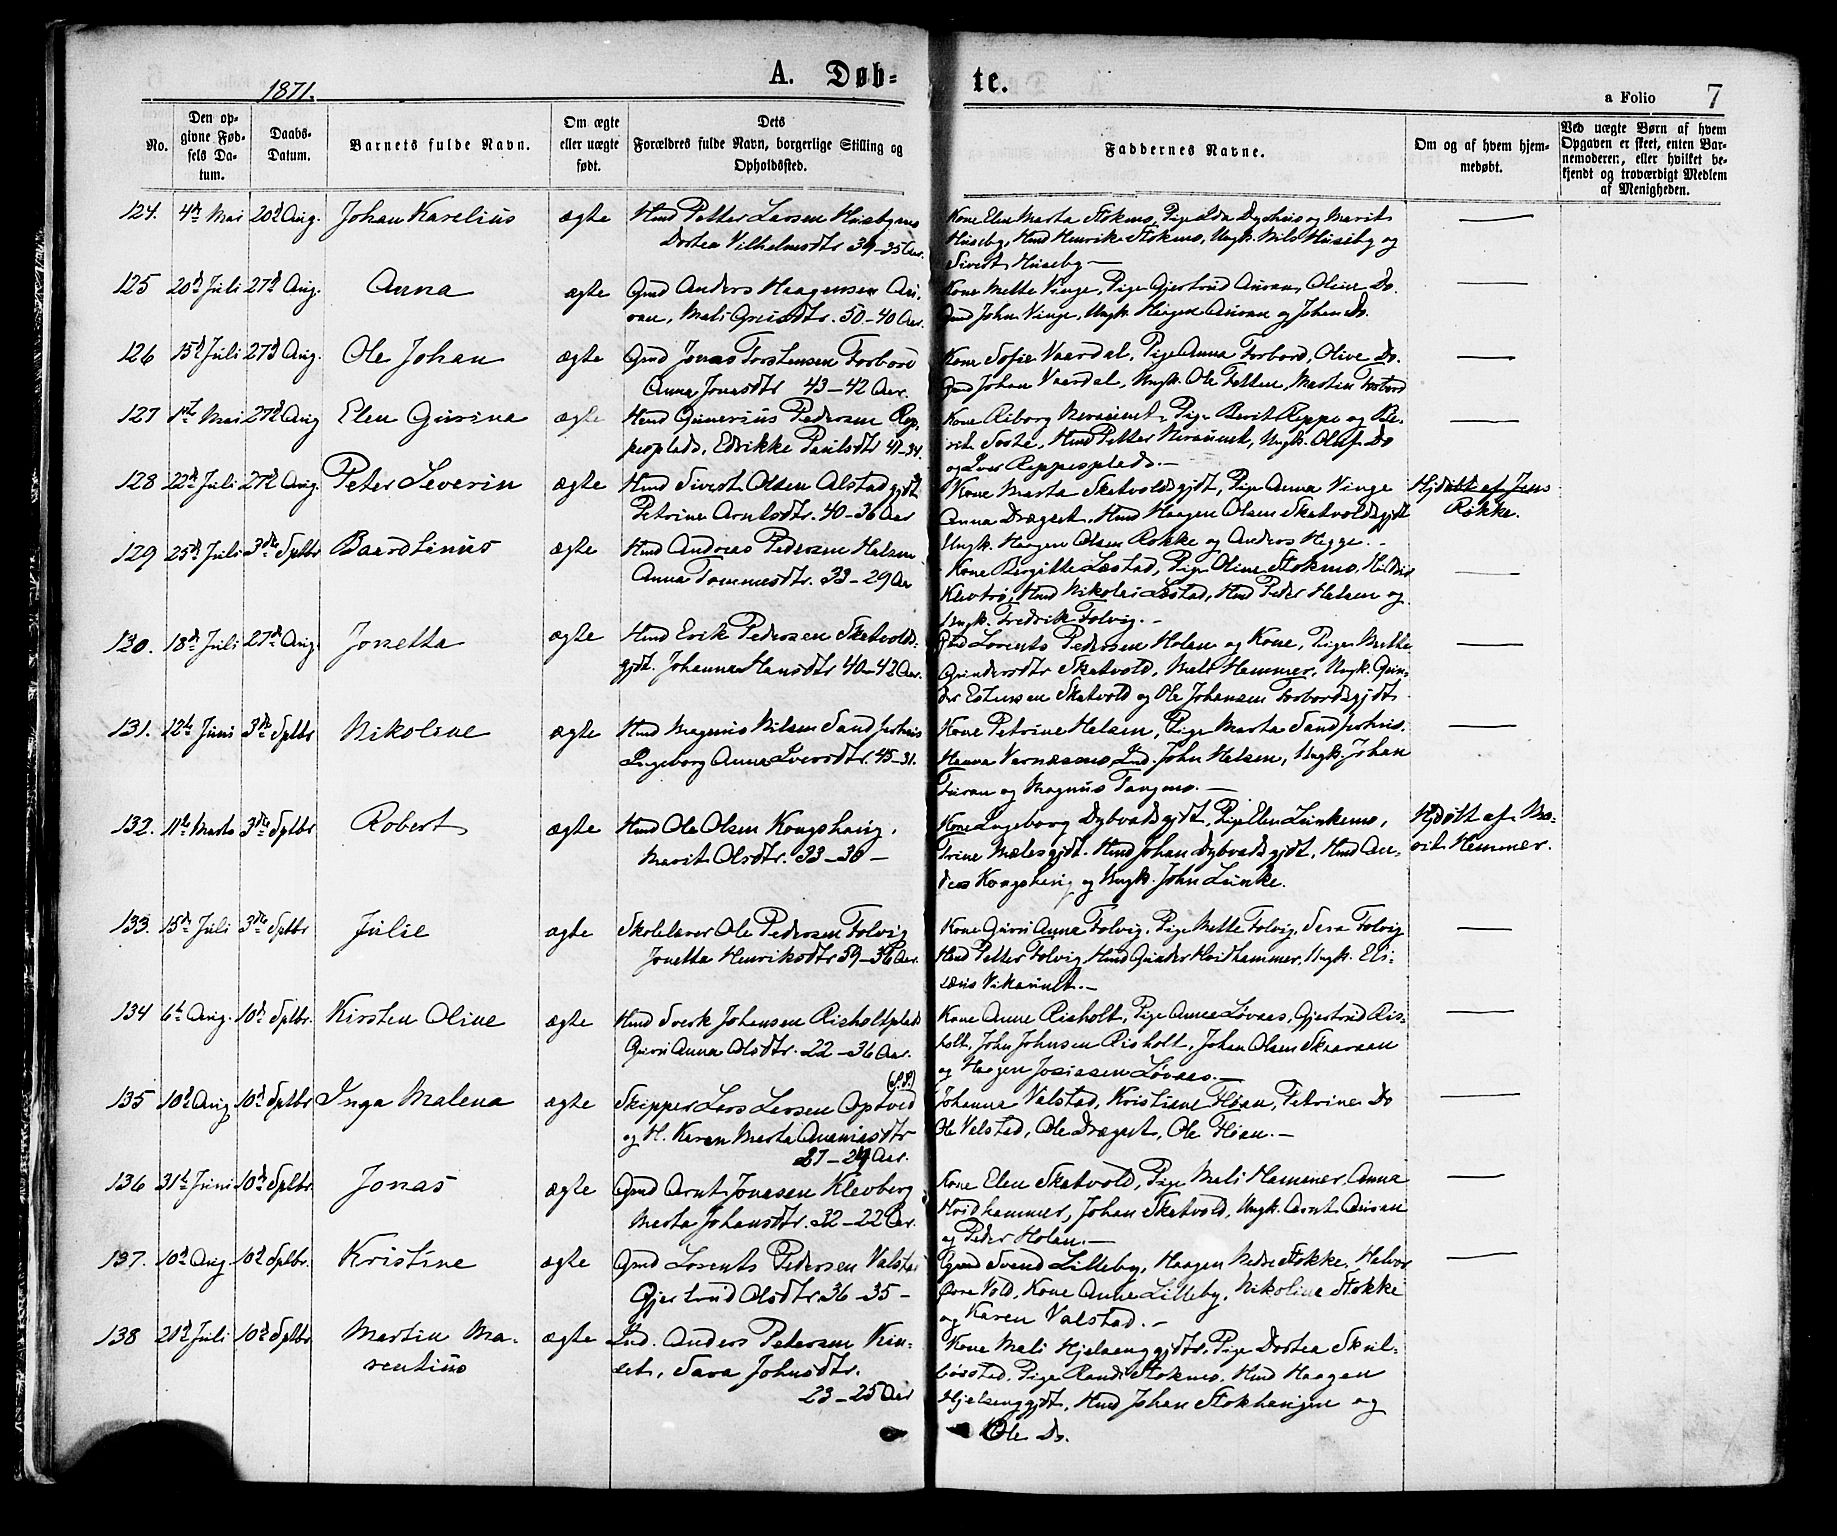 1871.
A. Døb-
te.
a Folio 7
No.
Den op-
givne Fød-
sels Da-
tum.
Daabs-
Datum.
Barnets fulde Navn.
Om ægte
eller uægte
født.
Dets
Forældres fulde Navn, borgerlige Stilling og
Opholdssted.
Faddernes Navne.
Om og af hvem hjem-
medøbt.
Ved uægte Børn af hvem
Opgaven er skeet, enten Bar-
nemoderen, eller hvilket be-
kjendt og troværdigt Medlem
af Menigheden.
124. 4de Mai 20d Aug. Johan Karelius ægte Hmd Petter Larsen Husebymo
Dortea Vilhelmsdtr 39-35 Aar.
Kone Elen Marta Stokmo, Pige Ida Dyshus og Marit
Huseby, Hmd Henrik Stokmo, Ungk. Nils Huseby og
Sivert Huseby —
125 20d Juli 27d Aug. Anna ægte Gmd Anders Haagensen Aui-
ran, Mali 50-40 Aar.
Kone Mette Vinge, Pige Gjertrud Auran, Oline Do.
Gmd John Vinge, Ungk. Haagen Auran og Johan Do.
126 15d Juli 27d Aug. Ole Johan ægte Gmd Jonas Torstensen Forbord
Anna Jonasdtr 43-42 Aar.
Kone Sofie Vaardal, Pige Anna Forbord, Olive Do.
Gmd Johan Vaardal, Ungk. Ole Fetten, Martin Forbord
127 1ste Mai 27d Aug Elen Gurina ægte Hmd Gunerius Pedersen Rep-
pesplads, Edrikke Paulsdtr 41-34.
Kone Pige Berit Reppe og Be-
rit Hmd Petter Ungk. Oluf Do
og Iver Reppesplads. —
128 22d Juli 27d Aug. Peter Severin ægte Hmd Sivert Olsen Alstadgjdt
Petrine Arntsdtr. 40-36 Aar
Kone Marta Skatvoldsgjdt, Pige Anna Vinge
Anna Drægset, Hmd Haagen Olsen Skatvoldsgjdt
Ungk. Haagen Olsen Rokke og Anders Hegge. —
Hjdøbt af Jens
Rokke.
129 25d Juli 3die Sptbr Baard Linus ægte Hmd Andreas Pedersen Halsen
Anna Tommesdtr. 33-29 Aar
Kone Bergitte Læstad, Pige Oline Stokmo,
Klevtrø, Hmd Nikolai Læstad, Hmd Peder Halsen og
Ungk. Fredrik Folvig. —
130. 18d Juli 27de Aug. Jonetta ægte Hmd Erik Pedersen Skatvolds-
gjdt. Johanna Hansdtr 40-42 Aar.
Gmd Lorents Pedersen Holan og Kone, Pige Berthe
Gundersdtr Skatvold, Mali Hammer, Ungk. Gun-
der Estensen Skatvold og Ole Johansen Forbordsgjdt
131. 12te Juni 3die Sptbr Nikoline ægte Hmd Magnus Nilsen Sandferhus
Ingeborg Anna Iversdtr. 45-31.
Kone Petrine Halsen, Pige Marta Sandferhus.
Hanna Værnæsmo Ind. John Halsen, Ungk. Johan
Turan og Magnus Tangmo. —
132. 11te Marts 3die Sptbr Robert ægte Hmd Ole Olsen Kongshaug,
Marit Olsdtr. 33-30 —
Kone Ingeborg Dybvadsgjdt, Pige Elen Lunkemo,
Trine Mælesgjdt. Hmd Johan Dybvadsgjdt, Hmd An-
ders Kongshaug og Ungk. John Lunke.
Hjdøbt af Ma-
rit Hammer.
133. 15de Juli 3die Sptbr Julie ægte Skolelærer Ole Pedersen Folvig
Jonetta Henriksdtr 39-36 Aar.
Kone Guri Anna Folvig, Pige Mette Folvig, Sera Folvig
Hmd Petter Folvig, Hmd Gunder Hvidhammer, Ungk. Eli-
sæus Vikanut. —
134 6te Aug. 10de Sptbr. Kirsten Oline ægte Hmd Sverk Johansen Risholtplads
Guri Anna Olsdtr. 22-36 Aar.
Kone Anne Risholt, Pige Anna Løvaas, Gjertrud Ris-
holt, John Johnsen Risholt, Johan Olsen Skaaraan
og Haagen Josiasen Løvaas. —
135 10d Aug 10d Sptbr Inga Malena ægte Skipper Lars Larsen Optved
og H. Karen Marta Ananiasdtr
27-24 Aar.
Johanna Valstad, Kristiane Hoan, Petrine Do
Ole Valstad, Ole Drægset, Ole Hoan. —
136 31te Juni 10d Sptbr. Jonas ægte Gmd Arnt Jonasen Klevberg
Marta Johansdtr. 32-22 Aar.
Kone Elen Skatvold, Pige Mali Hammer, Anna
Hvidhammer, Johan Skatvold, Ungk. Arnt Auran
og Peder Holan. —
137. 10d Aug 10d Sptbr. Kristine ægte Gmd Lorents Pedersen Valstad
Gjertrud Olsdtr 36-35 —
Gmd Svend Lilleby, Haagen Nedre Stokke, Halvor
Øvre Vold, Kone Anne Lilleby, Nikoline Stokke
og Karen Valstad. —
138 21d Juli 10d Sptbr Martin Ma-
rentius
ægte Ind. Anders Petersen Kin-
set, Sara Johnsdtr.
23-25 Aar
Kone Mali Hjelsenggjdtr, Pige Dortea Skul-
børstad, Pige Randi Stokmo, Hmd Haagen
Hjelsenggjdt, Hmd Johan Stokhaugen og
Ole Do.